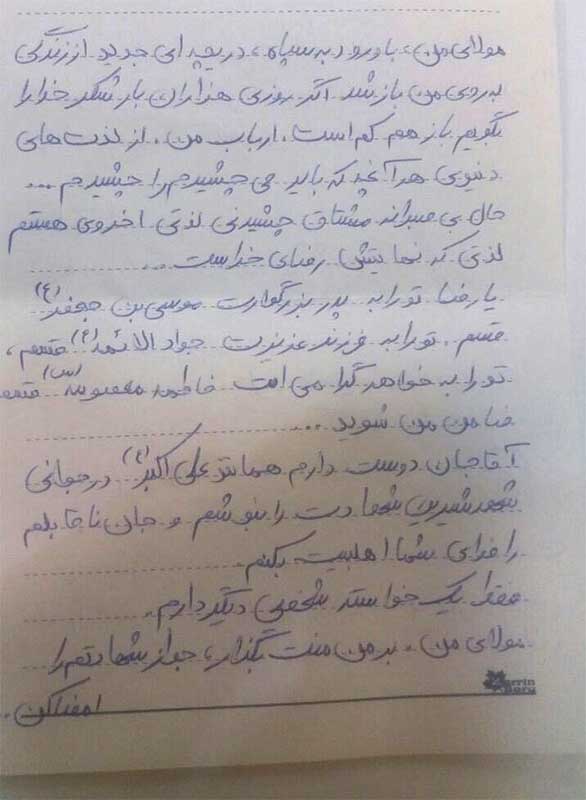 مولای من، با ورود به سپاه، دریچه ای جدید از زندگی
به روی من باز شد. اگر روزی هزاران بار شکر خدا را
بگویم باز هم کم است. ارباب من، از لذت های
دنیوی هر آنچه که باید می چشیدم را چشیدم ...
حال بی صبرانه مشتاق چشیدنی لذتی اخروی هستم
لذتی که نهایتش رضای خداست ...
یا رضا تو را به پدر بزرگوارت موسی بن جعفر (ع)
قسم، تو را به فرزند عزیزت جواد الائمه (ع) قسم،
تو را به خواهر گرامی ات فاطمه معصومه (س) قسم
ضامن من شوید ...
آقا جان دوست دارم همانند علی اکبر (ع) در جوانی
شهد شیرین شهادت را بنوشم و جان ناقابلم
را فدای شما اهلبیت بکنم.
فقط یک خواسته شخصی دیگر دارم.
مولای من، بر من منت بگذار، جواز شهادتم را
امضا کن.